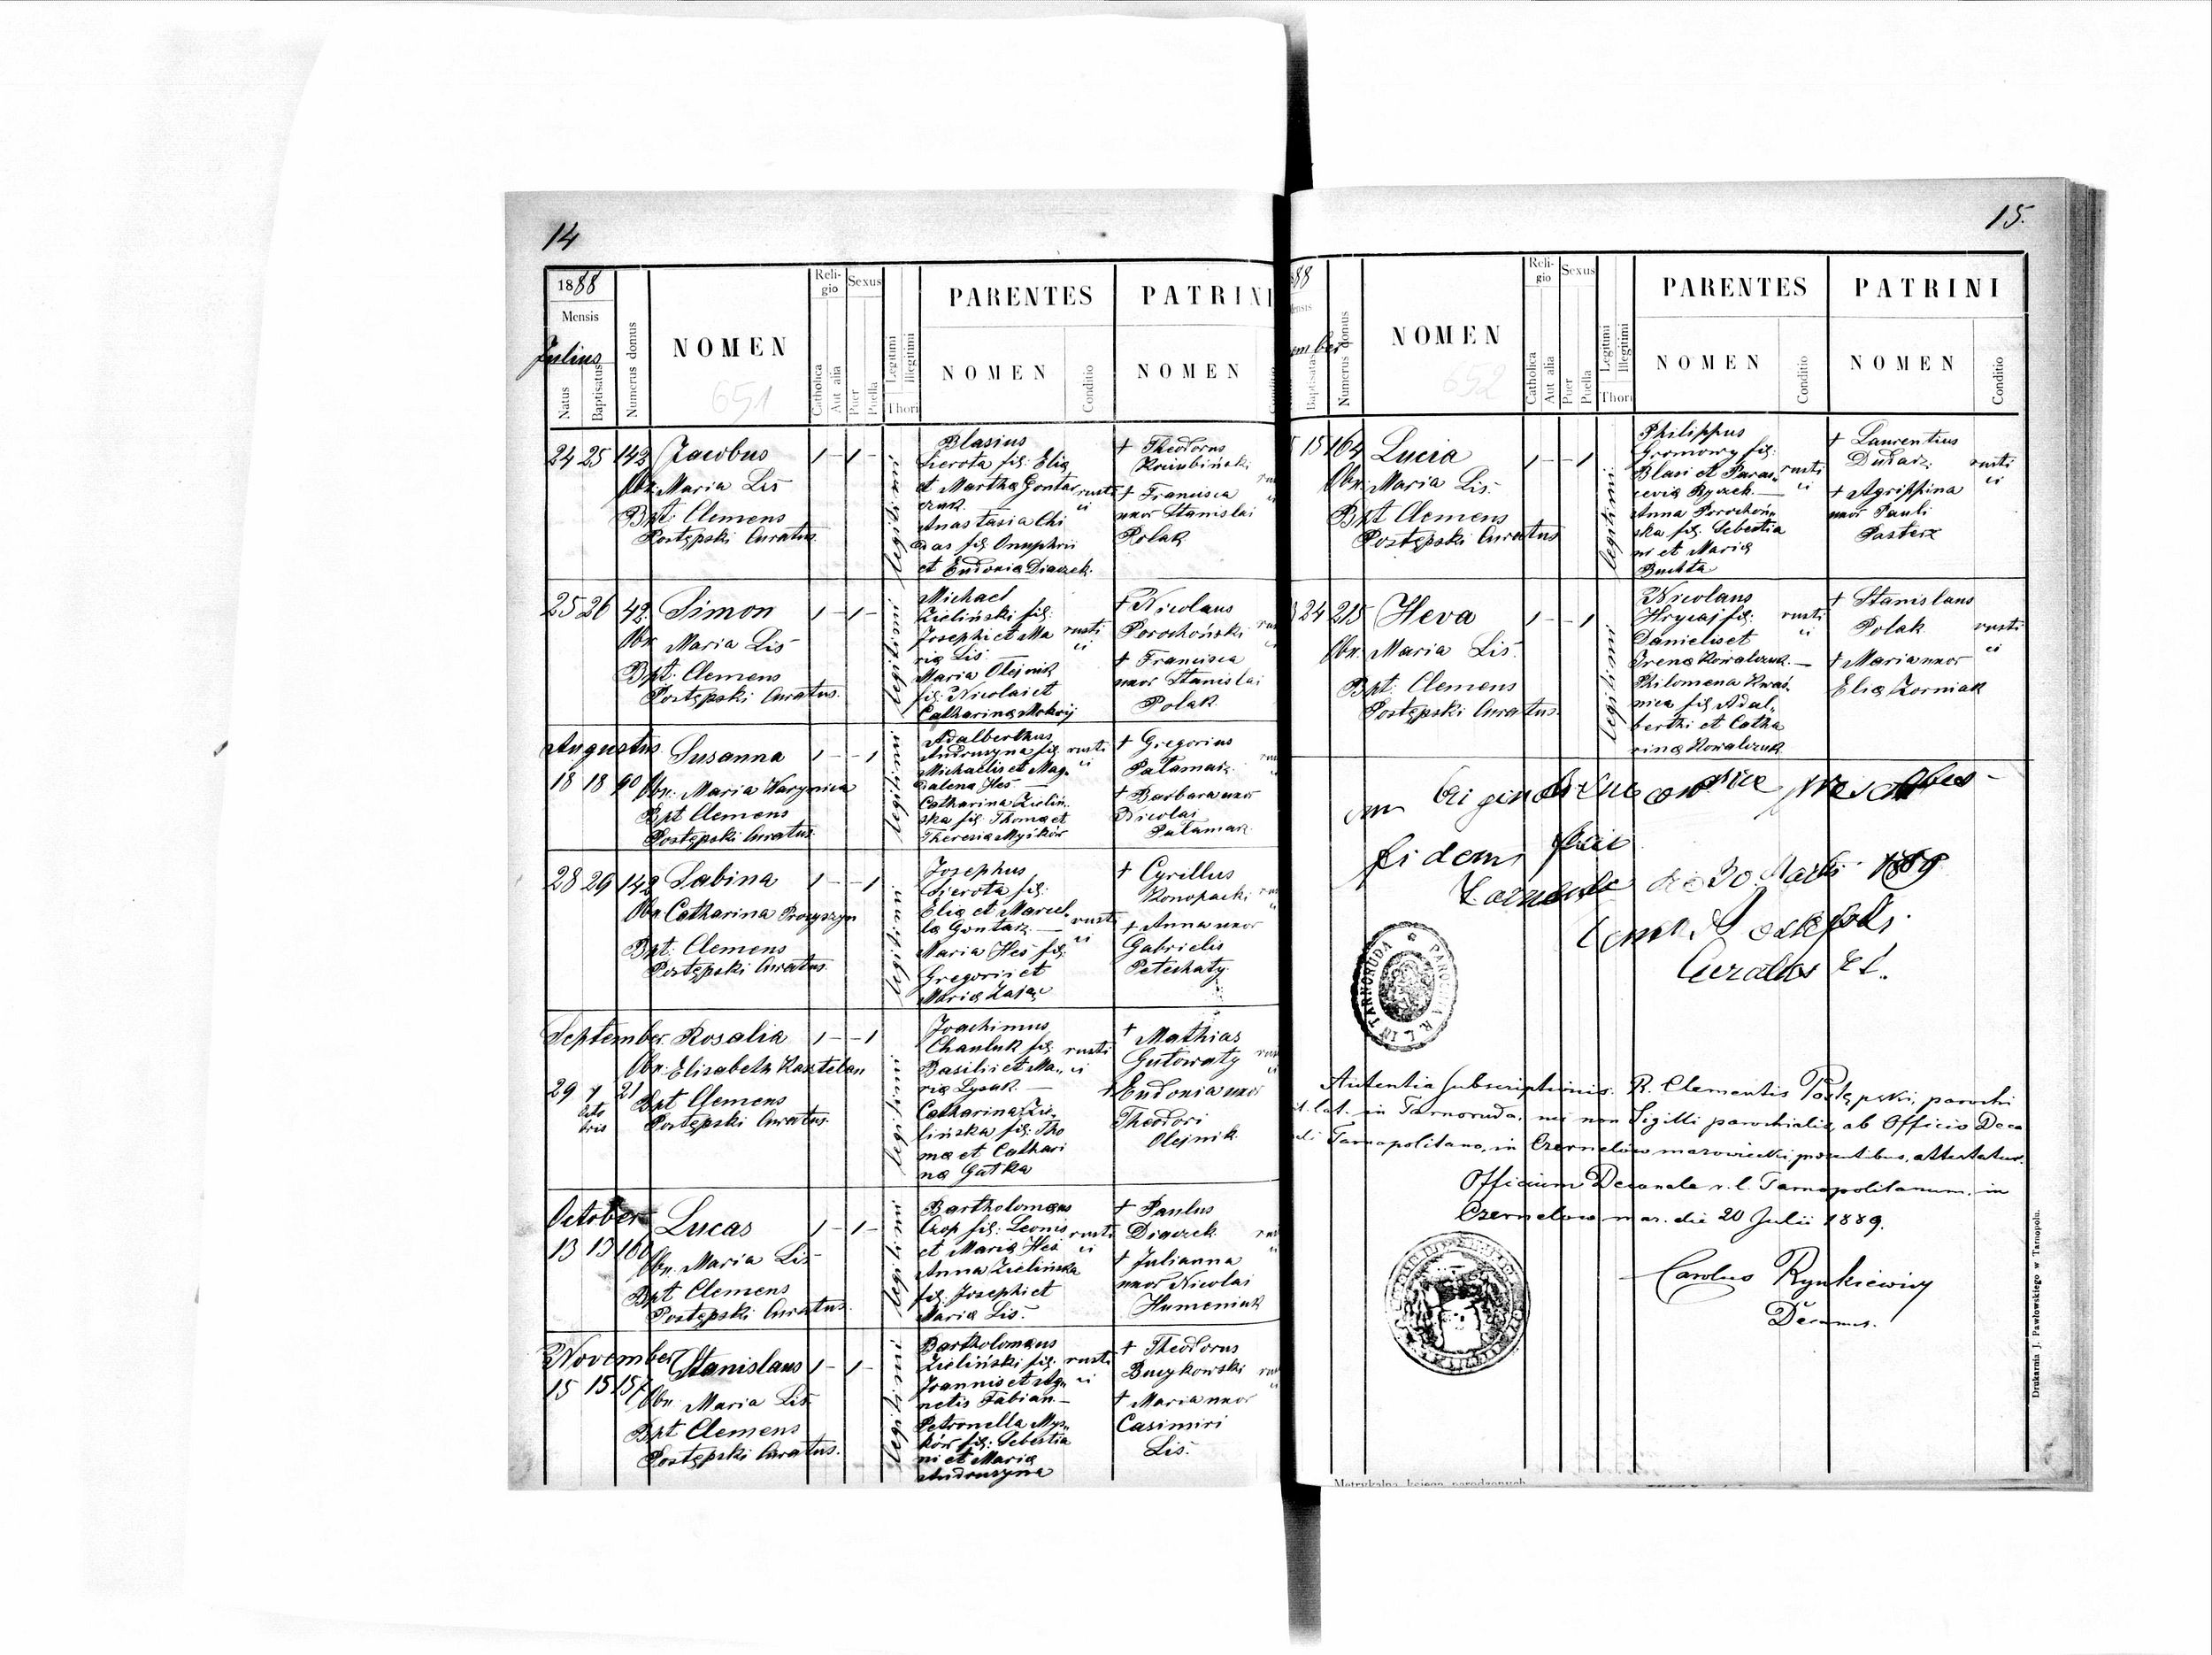 14
1888
Mensis
Julius
Natus
Baptisatus
Numerus domus
NOMEN
651
Religio
Catholica
Aut alia
Sexus
Puer
Puella
Legitimi
Illegitimi
Thori
PARENTES
NOMEN
Conditio
PATRINI
NOMEN
24 25 142 Jacobus
Obs. Maria Liś
Bpt: Clemens
Postępski Curatus.
legitimi
Blasius
Sierota fil: Eliæ
et Martha Gontar
czuk. —
Anastasia Chi
das fil. Onuphrii
et Eudoxiæ Diaczek.
rusti
ci
+ Theodorus
+ Francisca
uxor Stanislai
Polak
25 26 42. Simon
Obs. Maria Liś
Bpt: Clemens
Postępski Curatus.
legitimi
Michael
Zieliński fil:
Josephi et Ma
riæ Liś —
Maria Olejnik
fil: Nicolai et
Catharinæ Mokrij
rusti
ci
+ Nicolaus
Porochoński
+ Francisca
uxor Stanislai
Polak
Augustus
18 18 90 Susanna
Obs. Maria Warynica
Bpt Clemens
Postępski Curatus.
legitimi
Adalberthus
Andruszyna fil:
Michaelis et Mag-
dalenæ Heś —
Catharina Zieliń-
ska fil: Thomæ et
Theresiæ Myśków
rusti
ci
+ Gregorius
Palamar.
+ Barbara uxor
Nicolai
Palamar
28 29 142 Sabina
Obs. Catharina Proszyszyn
Bpt: Clemens
Postępski Curatus.
legitimi
Josephus
Sierota fil:
Eliæ et Marcel-
læ Gontarz. —
Maria Heś fil:
Gregorii et
Mariæ Zając
rusti
ci
+ Cyrillus
Konopacki
+ Anna uxor
Gabrielis
Petechaty
September. Rosalia
Obs: Elisabeth Kasztelan
29 7 Octobris 21 Bpt Clemens
Postępski Curatus.
legitimi
Joachimus
Chauluk fil:
Basilii et Ma-
riæ Lysak. —
Catharina Zie-
lińska fil: Tho
mæ et Cathari
næ Gałka
rusti
ci
+ Mathias
Gutowaty
+ Eudonia uxor
Theodori
Olejnik
October
13 13 160 Lucas
Obs. Maria Liś
Bpt Clemens
Postępski Curatus.
legitimi
Bartholomæus
Czop fil: Leonis
et Mariæ Heś
Anna Zielińska
fil: Josephi et
Mariæ Liś.
rusti
ci
+ Paulus
Diaczek
+ Julianna
uxor Nicolai
Humeniuk
November
15 15 157 Stanislaus
Obs. Maria Liś
Bpt Clemens
Postępski Curatus.
legitimi
Bartholomæus
Zieliński fil:
Joannis et Ag-
netis Fabian. —
Petronella Myś-
ków fil: Sebestia
ni et Mariæ
Andruszyna
rusti
ci
+ Theodorus
Bucykowski
+ Maria uxor
Casimiri
Liś.
15.
88
ember
Baptisatus
Numerus domus
NOMEN
652
Religio
Catholica
Aut alia
Sexus
Puer
Puella
Legitimi
Illegitimi
Thori
PARENTES
NOMEN
Conditio
PATRINI
NOMEN
Conditio
15 164 Lucia
Obs: Maria Liś.
Bpt Clemens
Postępski Curatus
legitimi
Philippus
Gromowy fil:
Blasi et Paras-
ceviæ Ryczek. —
Anna Porochoń-
ska fil: Sebestia
ni et Mariæ
Buchta
rusti
ci
+ Laurentius
Dudarz.
+ Agrippina
uxor Pauli
Pasterz
rusti
ci
24 215 Heva
Obs. Maria Liś.
Bpt: Clemens
Postępski Curatus.
legitimi
Nicolaus
Hrycaj fil:
Danielis et
Irenæ Kowalczuk. —
Philomena Kwaś-
nica fil: Adal-
berthi et Catha
rinæ Kowalczuk
rusti
ci
+ Stanislaus
Polak
+ Maria uxor
Eliæ Korniak
rusti
ci
fidem
1889
Curatus
PAROCHIA R. L. IN TARNORUDA
Autentia subscriptionis R. Clementis Postępski, parochi
r. lat. in Tarnoruda, nec non Sigilli parochialis, ab Officio Deca
nali Tarnopolitano, in Czernelów mazowiecki, præsentibus, attestatur.
Officium Decanale r. l. Tarnopolitanum. in
Czernelow maz. die 20 Julii 1889.
Carolus Rynkiewicz
Decanus.
Drukarnia J. Pawłowskiego w Tarnopolu.
Metrykalna księga narodzonych